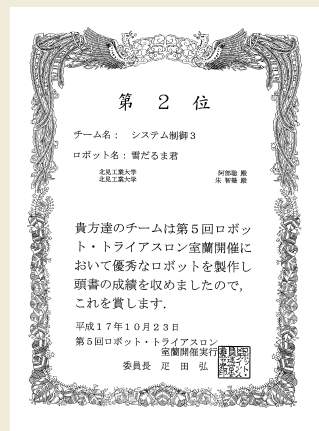 第　２　位
チーム名：　システム制御３
ロボット名：雪だるま君
北見工業大学　阿部聡 殿
北見工業大学　朱 智 殿
貴方達のチームは第５回ロボッ
ト・トライアスロン室蘭開催に
おいて優秀なロボットを製作し
頭書の成績を収めましたので，
これを賞します．
平成１７年１０月２３日
第５回ロボット・トライアスロン
室蘭開催実行
委員長　疋　田　弘